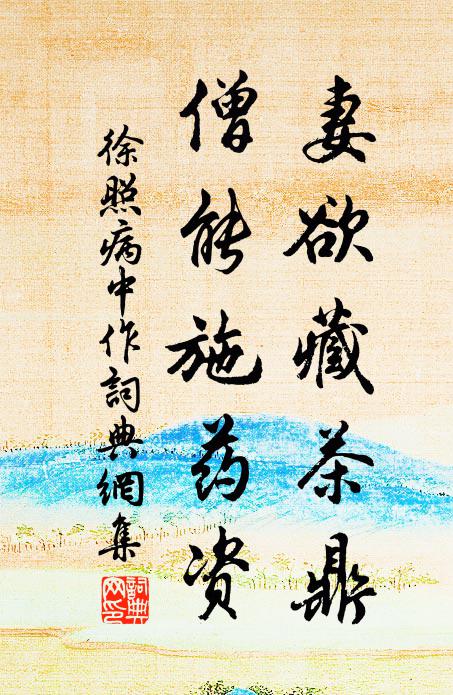 妻欲藏茶鼎
僧能施药资
徐照病中作詞典網集
詞典网印